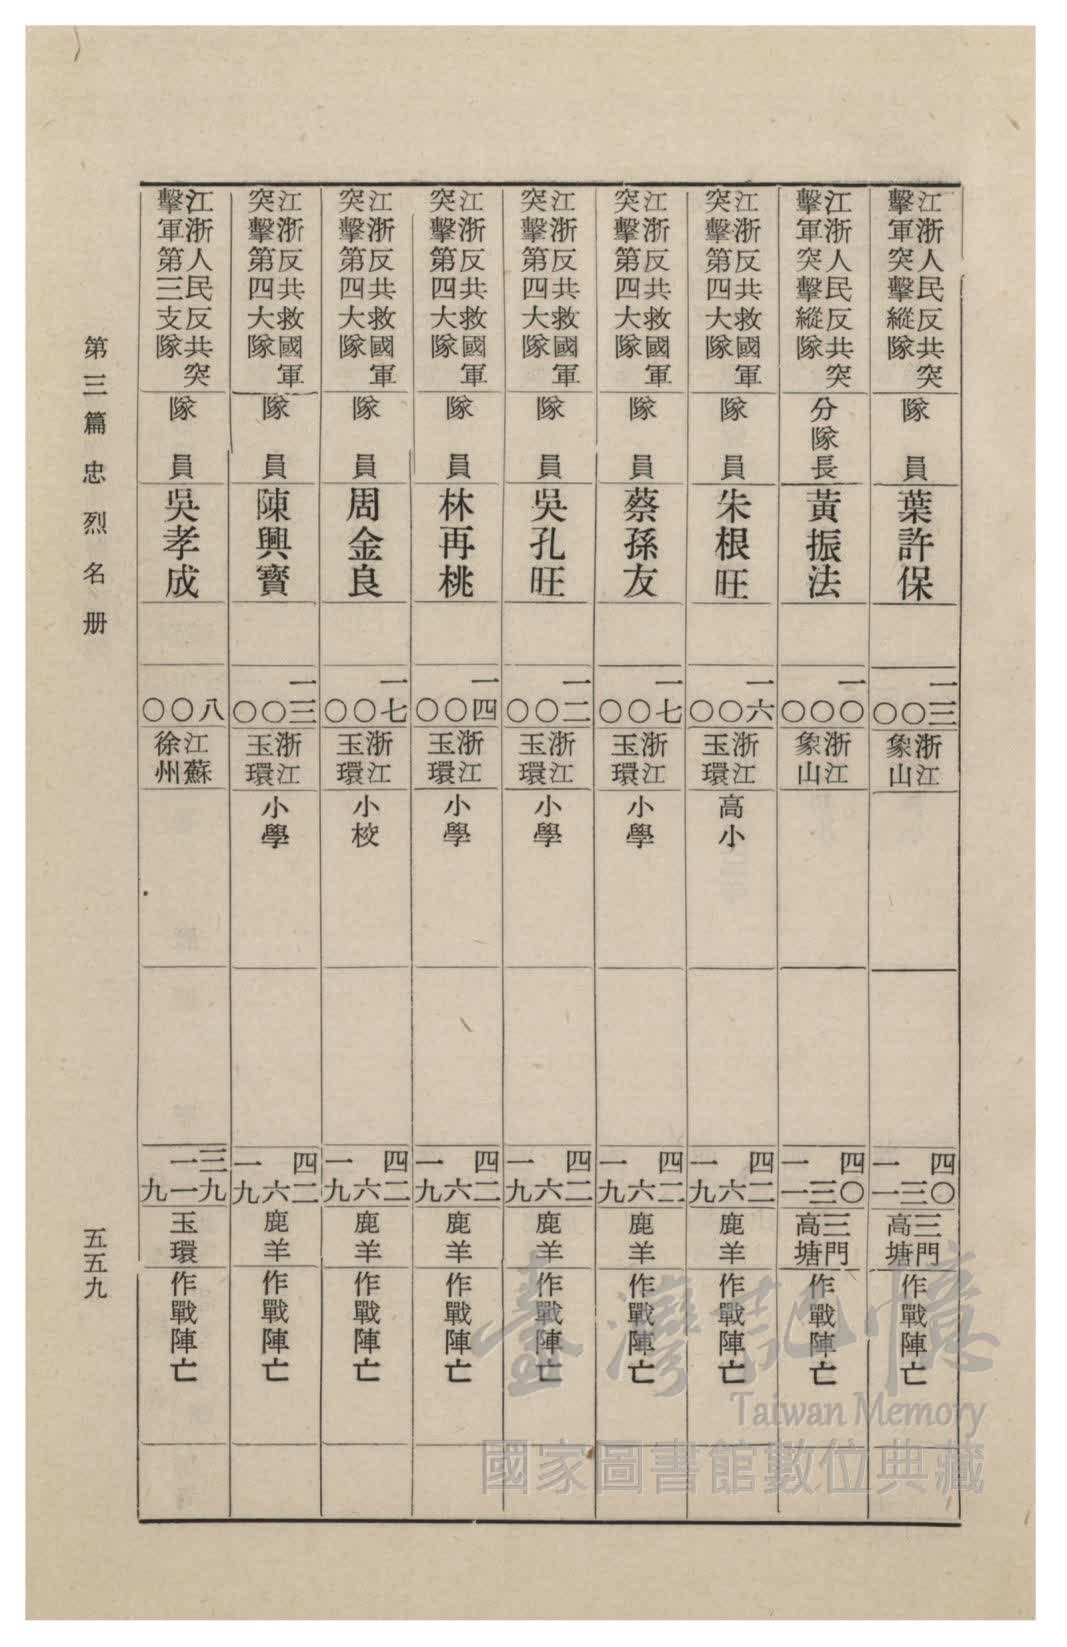 江浙人民反共突
擊軍突擊縱隊
隊員
葉許保
一三〇〇
浙江
象山
四〇
三
一一
三門
高塘
作戰陣亡
江浙人民反共突
擊軍突擊縱隊
分隊長
黃振法
一〇〇〇
浙江
象山
四〇
三
一一
三門
高塘
作戰陣亡
江浙反共救國軍
突擊第四大隊
隊員
朱根旺
一六〇〇
浙江
玉環
高小
四二
六
一九
鹿羊
作戰陣亡
江浙反共救國軍
突擊第四大隊
隊員
蔡孫友
一七〇〇
浙江
玉環
小學
四二
六
一九
鹿羊
作戰陣亡
江浙反共救國軍
突擊第四大隊
隊員
吳孔旺
一二〇〇
浙江
玉環
小學
四二
六
一九
鹿羊
作戰陣亡
江浙反共救國軍
突擊第四大隊
隊員
林再桃
一四〇〇
浙江
玉環
小學
四二
六
一九
鹿羊
作戰陣亡
江浙反共救國軍
突擊第四大隊
隊員
周金良
一七〇〇
浙江
玉環
小校
四二
六
一九
鹿羊
作戰陣亡
江浙反共救國軍
突擊第四大隊
隊員
陳興寶
一三〇〇
浙江
玉環
小學
四二
六
一九
鹿羊
作戰陣亡
江浙人民反共突
擊軍第三支隊
隊員
吳孝成
八〇〇
江蘇
徐州
三九
一一
九
玉環
作戰陣亡
第三篇 忠烈名册
五五九
臺灣記憶
Taiwan Memory
國家圖書館數位典藏